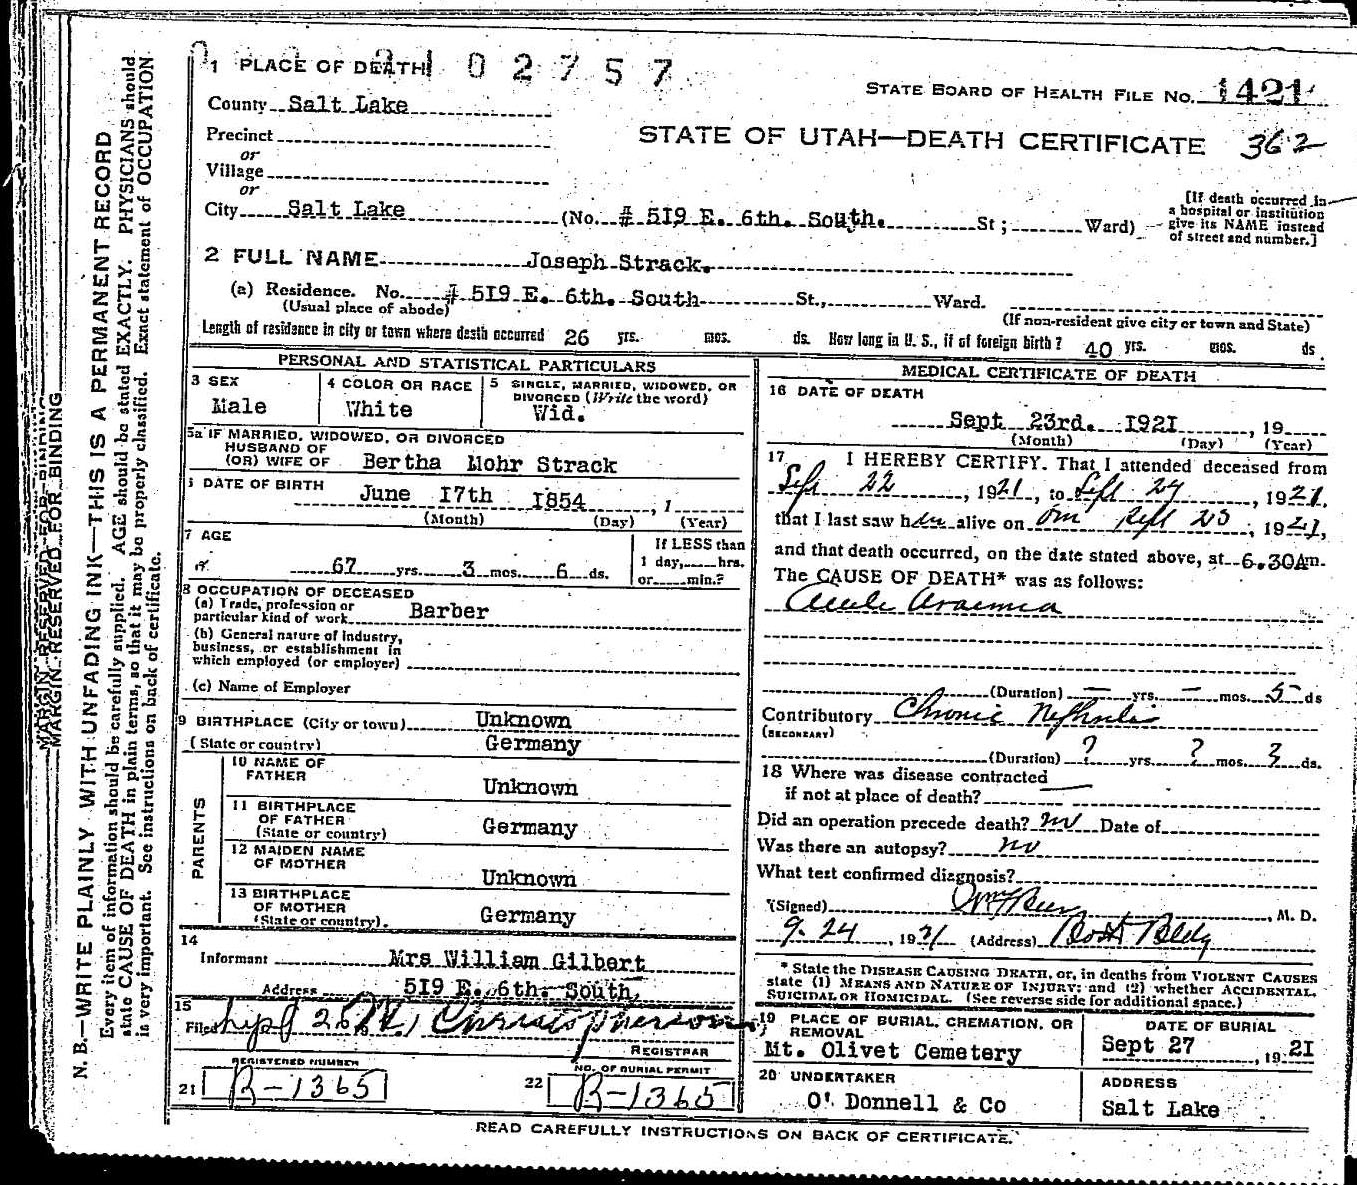 1 PLACE OF DEATH
02757
STATE BOARD OF HEALTH FILE NO. 1421
County Salt Lake
STATE OF UTAH—DEATH CERTIFICATE 362
Precinct
or
Village
or
City Salt Lake (No. # 519 E. 6th. South. St; Ward)
[If death occurred in
a hospital or institution
give its NAME instead
of street and number.]
2 FULL NAME Joseph Strack.
(a) Residence. No. # 519 E. 6th. South St., Ward.
(Usual place of abode) (If non-resident give city or town and State)
Length of residence in city or town where death occurred 26 yrs. mos. ds. How long in U. S., if of foreign birth? 40 yrs. mos. ds.
PERSONAL AND STATISTICAL PARTICULARS
3 SEX
Male
4 COLOR OR RACE
White
5 SINGLE, MARRIED, WIDOWED, OR
DIVORCED (Write the word)
Wid.
5a IF MARRIED, WIDOWED, OR DIVORCED
HUSBAND OF
(OR) WIFE OF Bertha Mohr Strack
6 DATE OF BIRTH June 17th 1854, 1
(Month) (Day) (Year)
7 AGE
67 yrs. 3 mos. 6 ds.
If LESS than
1 day, hrs.
or min.?
8 OCCUPATION OF DECEASED
(a) Trade, profession or
particular kind of work Barber
(b) General nature of Industry,
business, or establishment in
which employed (or employer)
(c) Name of Employer
9 BIRTHPLACE (City or town) Unknown
(State or country) Germany
PARENTS
10 NAME OF
FATHER Unknown
11 BIRTHPLACE
OF FATHER
(State or country) Germany
12 MAIDEN NAME
OF MOTHER Unknown
13 BIRTHPLACE
OF MOTHER
(State or country). Germany
14
Informant Mrs William Gilbert
Address 519 E. 6th. South,
15
Filed Christopherson
REGISTRAR
REGISTERED NUMBER
21 B-1365
NO. OF BURIAL PERMIT
22 B-1365
MEDICAL CERTIFICATE OF DEATH
16 DATE OF DEATH
Sept 23rd. 1921, 19
(Month) (Day) (Year)
17 I HEREBY CERTIFY. That I attended deceased from
Sept 22, 1921, to Sept 24, 1921.
that I last saw h alive on Sept 23, 1921,
and that death occurred, on the date stated above, at 6.30Am.
The CAUSE OF DEATH* was as follows:
Acute Uraemia
(Duration) — yrs. — mos. 5 ds
Contributory Chronic Nephritis
(SECONDARY)
(Duration) ? yrs. ? mos. 3 ds.
18 Where was disease contracted
if not at place of death?
Did an operation precede death? no Date of
Was there an autopsy? no
What test confirmed diagnosis?
(Signed) M. D.
9-24, 1921 (Address) Boston Bldg
* State the DISEASE CAUSING DEATH, or, in deaths from VIOLENT CAUSES
state (1) MEANS AND NATURE OF INJURY; and (2) whether ACCIDENTAL,
SUICIDAL or HOMICIDAL. (See reverse side for additional space.)
19 PLACE OF BURIAL, CREMATION, OR
REMOVAL
Mt. Olivet Cemetery
DATE OF BURIAL
Sept 27, 1921
20 UNDERTAKER
O' Donnell & Co
ADDRESS
Salt Lake
READ CAREFULLY INSTRUCTIONS ON BACK OF CERTIFICATE.
MARGIN RESERVED FOR BINDING
N. B.—WRITE PLAINLY WITH UNFADING INK—THIS IS A PERMANENT RECORD
Every item of information should be carefully supplied. AGE should be stated EXACTLY. PHYSICIANS should
state CAUSE OF DEATH in plain terms, so that it may be properly classified. Exact statement of OCCUPATION
is very important. See instructions on back of certificate.